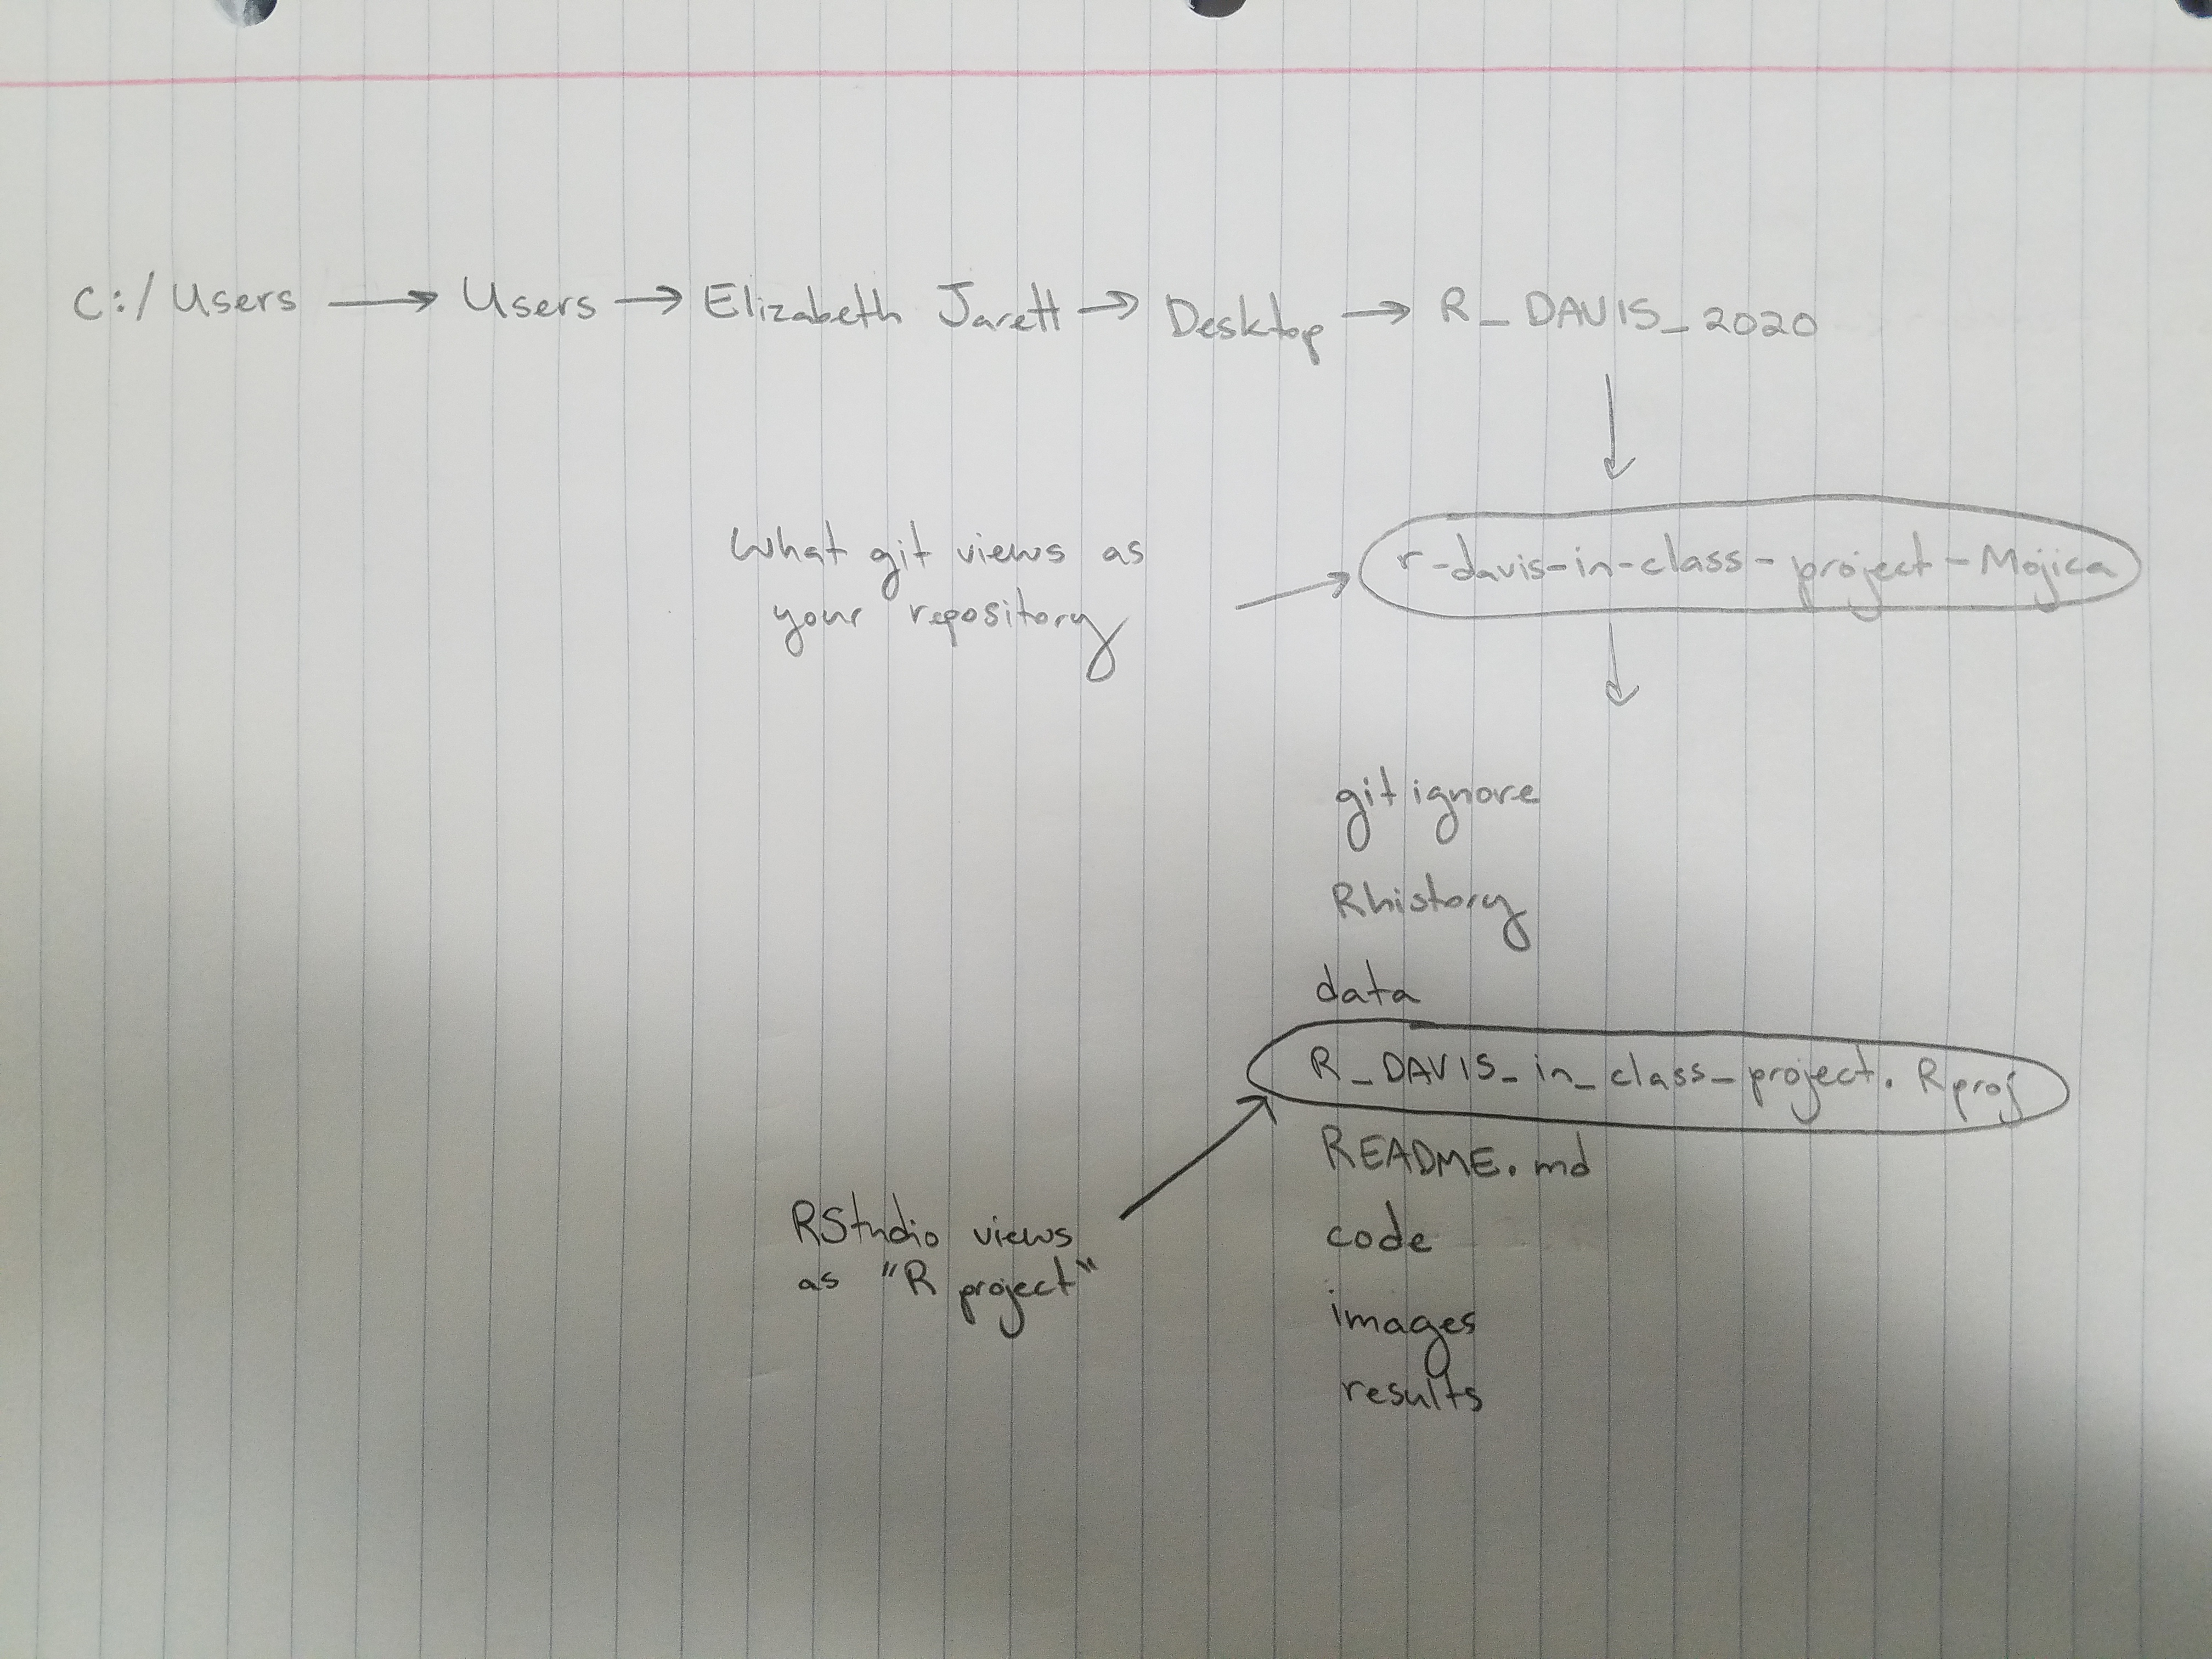 C:/Users → Users → Elizabeth Jarett → Desktop → R_DAVIS_2020
What git views as
your repository
r-davis-in-class-project-Mojica
git ignore
Rhistory
data
R_DAVIS_in_class_project.Rproj
README.md
RStudio views
as "R project"
code
images
results